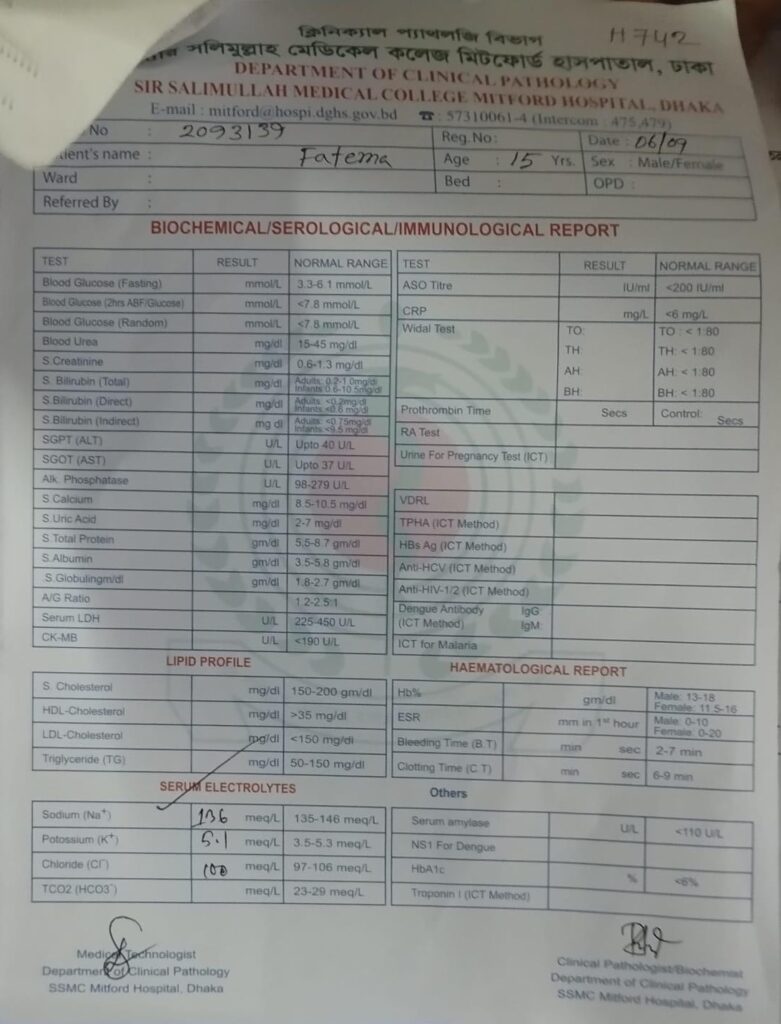 ক্লিনিক্যাল প্যাথলজি বিভাগ
H742
সলিমুল্লাহ মেডিকেল কলেজ মিটফোর্ড হাসপাতাল, ঢাকা
DEPARTMENT OF CLINICAL PATHOLOGY
SIR SALIMULLAH MEDICAL COLLEGE MITFORD HOSPITAL, DHAKA
E-mail : mitford@hospi.dghs.gov.bd ☎ : 57310061-4 (Intercom : 475,479)
No : 2093139 Reg.No: Date : 06/09
tient's name : Fatema Age : 15 Yrs. Sex : Male/Female
Ward : Bed : OPD :
Referred By :
BIOCHEMICAL/SEROLOGICAL/IMMUNOLOGICAL REPORT
TEST RESULT NORMAL RANGE
Blood Glucose (Fasting) mmol/L 3.3-6.1 mmol/L
Blood Glucose (2hrs ABF/Glucose) mmol/L <7.8 mmol/L
Blood Glucose (Random) mmol/L <7.8 mmol/L
Blood Urea mg/dl 15-45 mg/dl
S.Creatinine mg/dl 0.6-1.3 mg/dl
S. Bilirubin (Total) mg/dl Adults: 0.2-1.0mg/dl
Infants 0.6-10.5mg/dl
S.Bilirubin (Direct) mg/dl Adults: <0.2mg/dl
Infants <0.6 mg/dl
S.Bilirubin (Indirect) mg dl Adults: <0.75mg/dl
Infants <9.5 mg/dl
SGPT (ALT) U/L Upto 40 U/L
SGOT (AST) U/L Upto 37 U/L
Alk. Phosphatase U/L 98-279 U/L
S.Calcium mg/dl 8.5-10.5 mg/dl
S.Uric Acid mg/dl 2-7 mg/dl
S.Total Protein gm/dl 5.5-8.7 gm/dl
S.Albumin gm/dl 3.5-5.8 gm/dl
S.Globulingm/dl gm/dl 1.8-2.7 gm/dl
A/G Ratio 1.2-2.5:1
Serum LDH U/L 225-450 U/L
CK-MB U/L <190 U/L
TEST RESULT NORMAL RANGE
ASO Titre IU/ml <200 IU/ml
CRP mg/L <6 mg/L
Widal Test TO: TO : < 1:80
TH: TH: < 1:80
AH: AH: < 1:80
BH: BH: < 1:80
Prothrombin Time Secs Control: Secs
RA Test
Urine For Pregnancy Test (ICT)
VDRL
TPHA (ICT Method)
HBs Ag (ICT Method)
Anti-HCV (ICT Method)
Anti-HIV-1/2 (ICT Method)
Dengue Antibody IgG:
(ICT Method) IgM:
ICT for Malaria
LIPID PROFILE
S. Cholesterol mg/dl 150-200 gm/dl
HDL-Cholesterol mg/dl >35 mg/dl
LDL-Cholesterol mg/dl <150 mg/dl
Triglyceride (TG) mg/dl 50-150 mg/dl
HAEMATOLOGICAL REPORT
Hb% gm/dl Male: 13-18
Female: 11.5-16
ESR mm in 1st hour Male: 0-10
Female: 0-20
Bleeding Time (B.T) min sec 2-7 min
Clotting Time (C.T) min sec 6-9 min
SERUM ELECTROLYTES
Sodium (Na+) 136 meq/L 135-146 meq/L
Potossium (K+) 5.1 meq/L 3.5-5.3 meq/L
Chloride (Cl-) 100 meq/L 97-106 meq/L
TCO2 (HCO3-) meq/L 23-29 meq/L
Others
Serum amylase U/L <110 U/L
NS1 For Dengue
HbA1c % <6%
Troponin I (ICT Method)
Medical Technologist
Department of Clinical Pathology
SSMC Mitford Hospital, Dhaka
Clinical Pathologist/Biochemist
Department of Clinical Pathology
SSMC Mitford Hospital, Dhaka